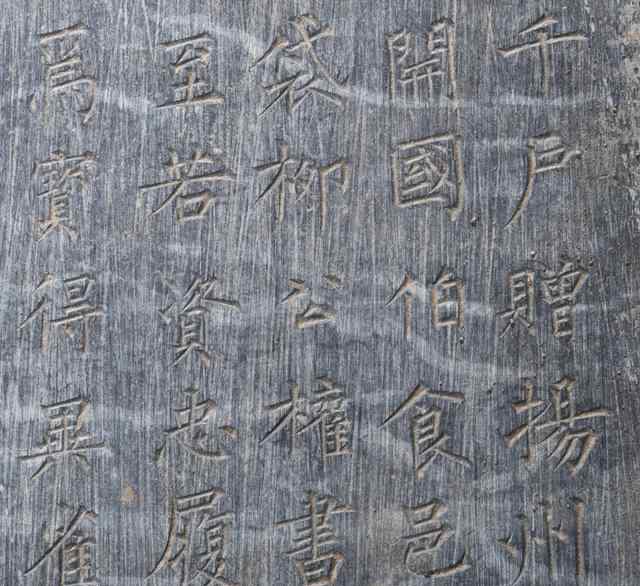 千戶贈揚州
開國伯食邑
袋柳公權書
至若資忠履
爲寶得異雀